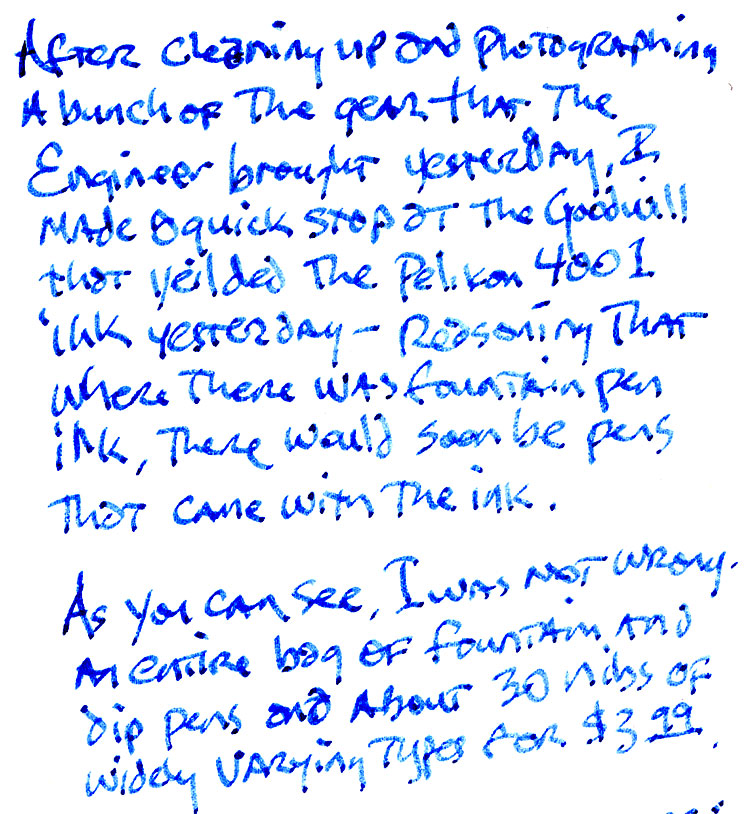 After cleaning up and photographing
A bunch of The gear that The
Engineer brought yesterday, I
Made a quick stop at The Goodwill
that yeilded The Pelikan 4001
ink yesterday - Reasoning That
where There was fountain pen
ink, There would soon be pens
That came with The ink.
As you can see, I was not wrong.
An entire bag of fountain and
dip pens and About 30 nibs of
widely varying Types for $3.99.